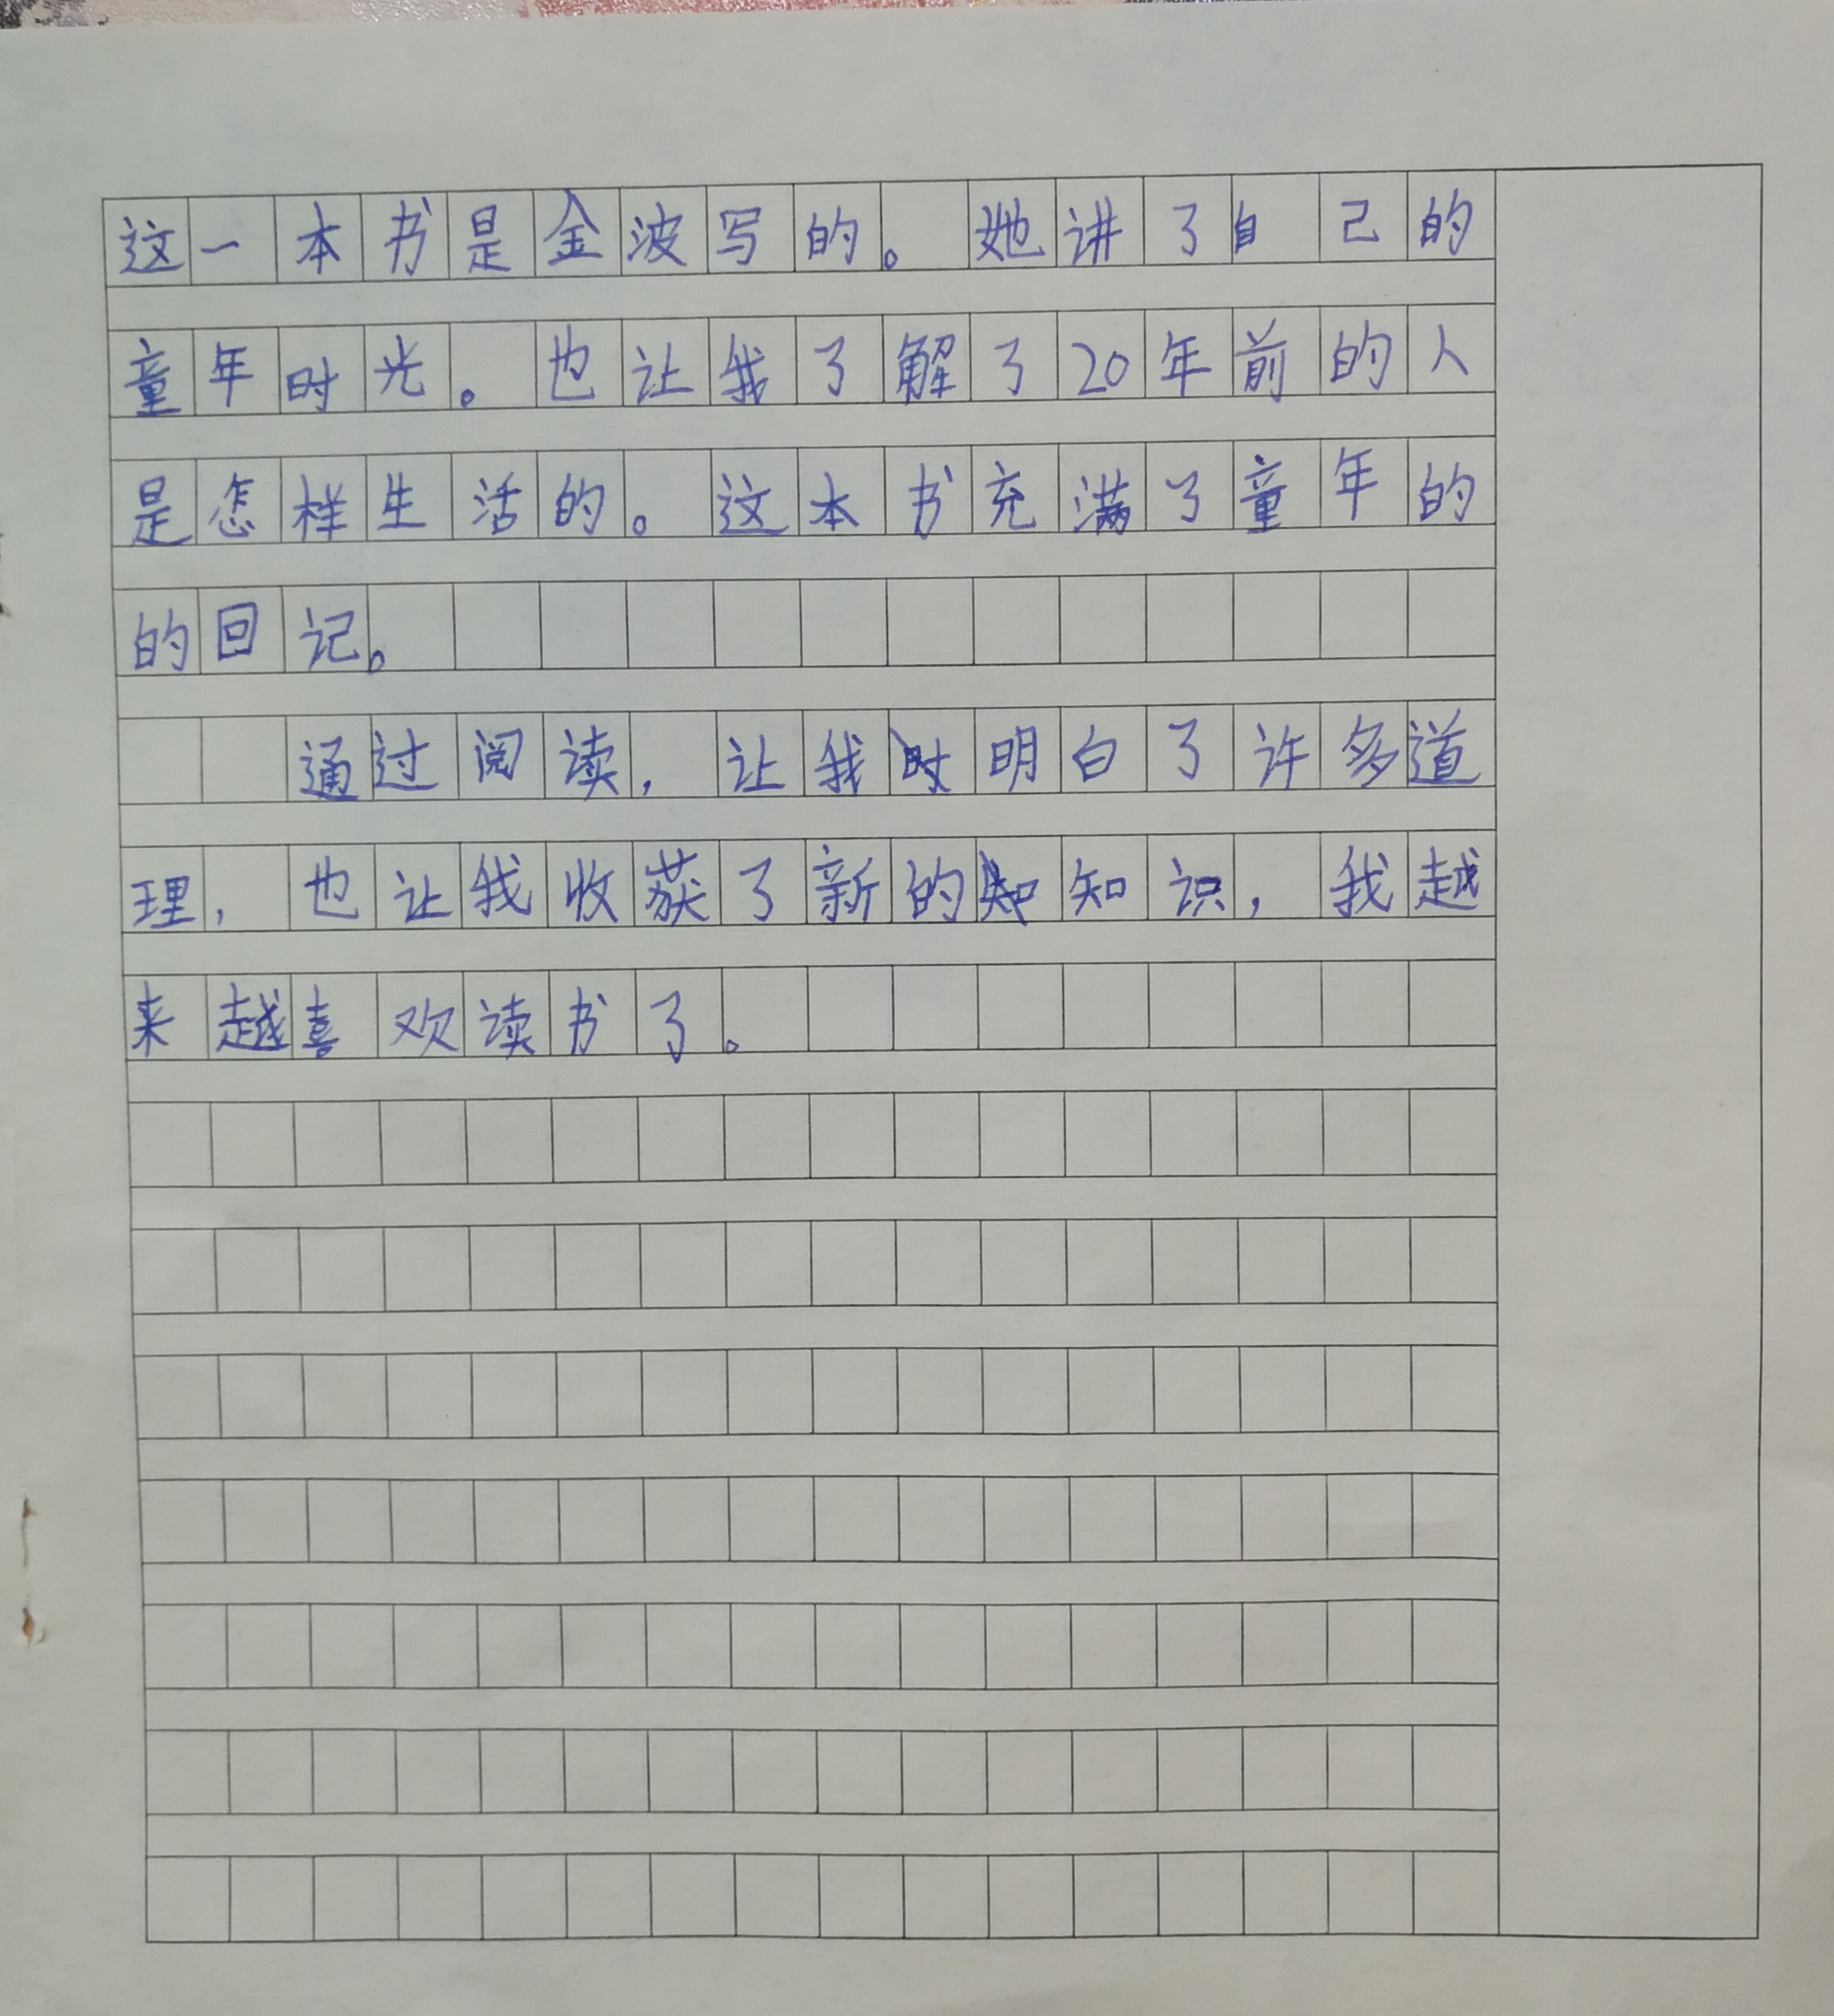 这一本书是金波写的。她讲了自己的
童年时光。也让我了解了20年前的人
是怎样生活的。这本书充满了童年的
的回记。
通过阅读，让我明白了许多道
理，也让我收获了新的知识，我越
来越喜欢读书了。